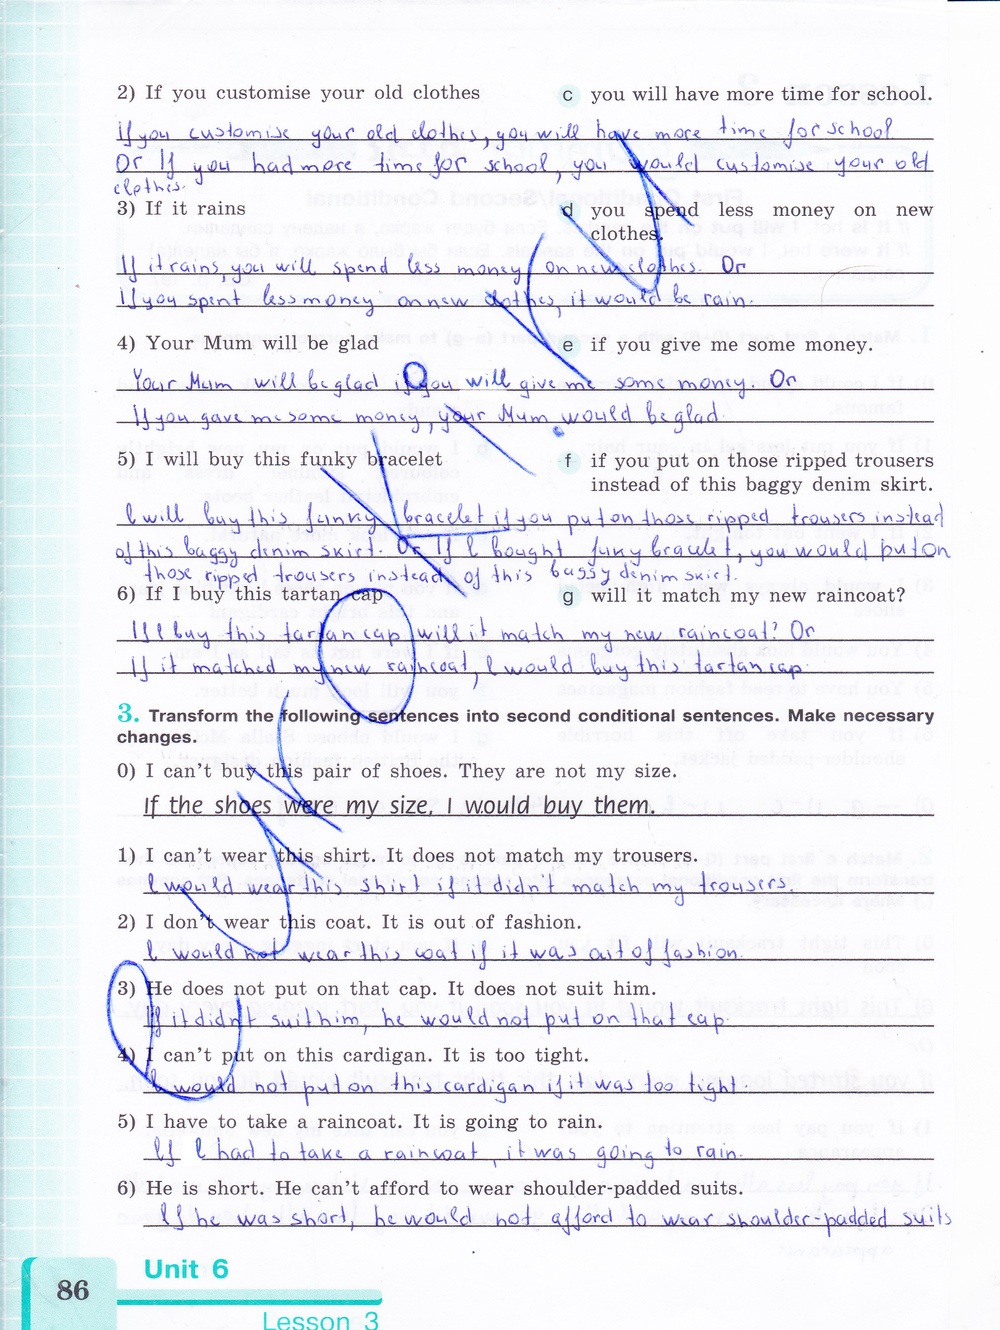 2) If you customise your old clothes
c you will have more time for school.
If you customise your old clothes, you will have more time for school
Or If you had more time for school, you would customise your old
clothes.
3) If it rains
d you spend less money on new
clothes.
If it rains, you will spend less money on new clothes. Or
If you spent less money on new clothes, it would be rain.
4) Your Mum will be glad
e if you give me some money.
Your Mum will be glad if you will give me some money. Or
If you gave me some money, your Mum would be glad.
5) I will buy this funky bracelet
f if you put on those ripped trousers
instead of this baggy denim skirt.
I will buy this funny bracelet if you put on those ripped trousers instead
of this baggy denim skirt. Or If I bought funy bracelet, you would put on
those ripped trousers instead of this baggy denim skirt.
6) If I buy this tartan cap
g will it match my new raincoat?
If I buy this tartan cap, will it match my new raincoat? Or
If it matched my new raincoat, I would buy this tartan cap.
3. Transform the following sentences into second conditional sentences. Make necessary
changes.
0) I can't buy this pair of shoes. They are not my size.
If the shoes were my size, I would buy them.
1) I can't wear this shirt. It does not match my trousers.
I would wear this shirt if it didn't match my trousers.
2) I don't wear this coat. It is out of fashion.
I would not wear this coat if it was out of fashion.
3) He does not put on that cap. It does not suit him.
If it didn't suit him, he would not put on that cap
4) I can't put on this cardigan. It is too tight.
I would not put on this cardigan if it was too tight.
5) I have to take a raincoat. It is going to rain.
If I had to take a raincoat, it was going to rain.
6) He is short. He can't afford to wear shoulder-padded suits.
If he was short, he would not afford to wear shoulder-padded suits
86
Unit 6
Lesson 3